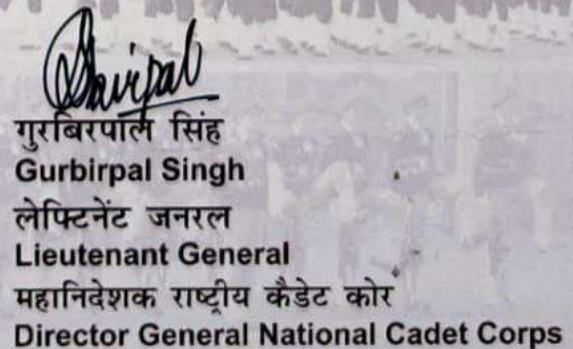 गुरबिरपाल सिंह
Gurbirpal Singh
लेफ्टिनेंट जनरल
Lieutenant General
महानिदेशक राष्ट्रीय कैडेट कोर
Director General National Cadet Corps